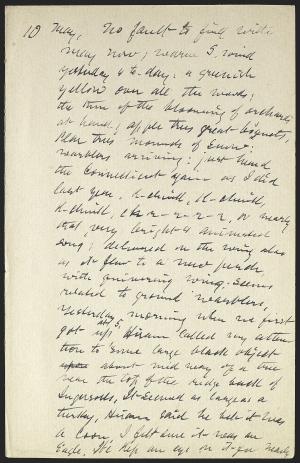 10 May, No fault to find with
May now; warm S. wind
yesterday & to-day: a greenish
yellow over all the woods;
the time of the blooming of orchards
at hand; apple trees great bouquets,
Plum trees mounds of snow;
warblers arriving: just heard
the Connecticut again as I did
last year, K-chuill, K-chuill,
K-chuill, cha-r-r-r-r, or nearly
that very bright & animated
song; delivered on the wing also
as it flew to a new perch
with quivering wing. Seems
related to ground warblers,
Yesterday morning when we first
got up at 5, Hiram called my atten-
tion to some large black object
about mid way of a tree
near the top of the ridge back of
Ingersolls, It seemed as large as a
turkey, Hiram said he bet it was
a Coon, I felt sure it was an
Eagle. We kept an eye on it for nearly